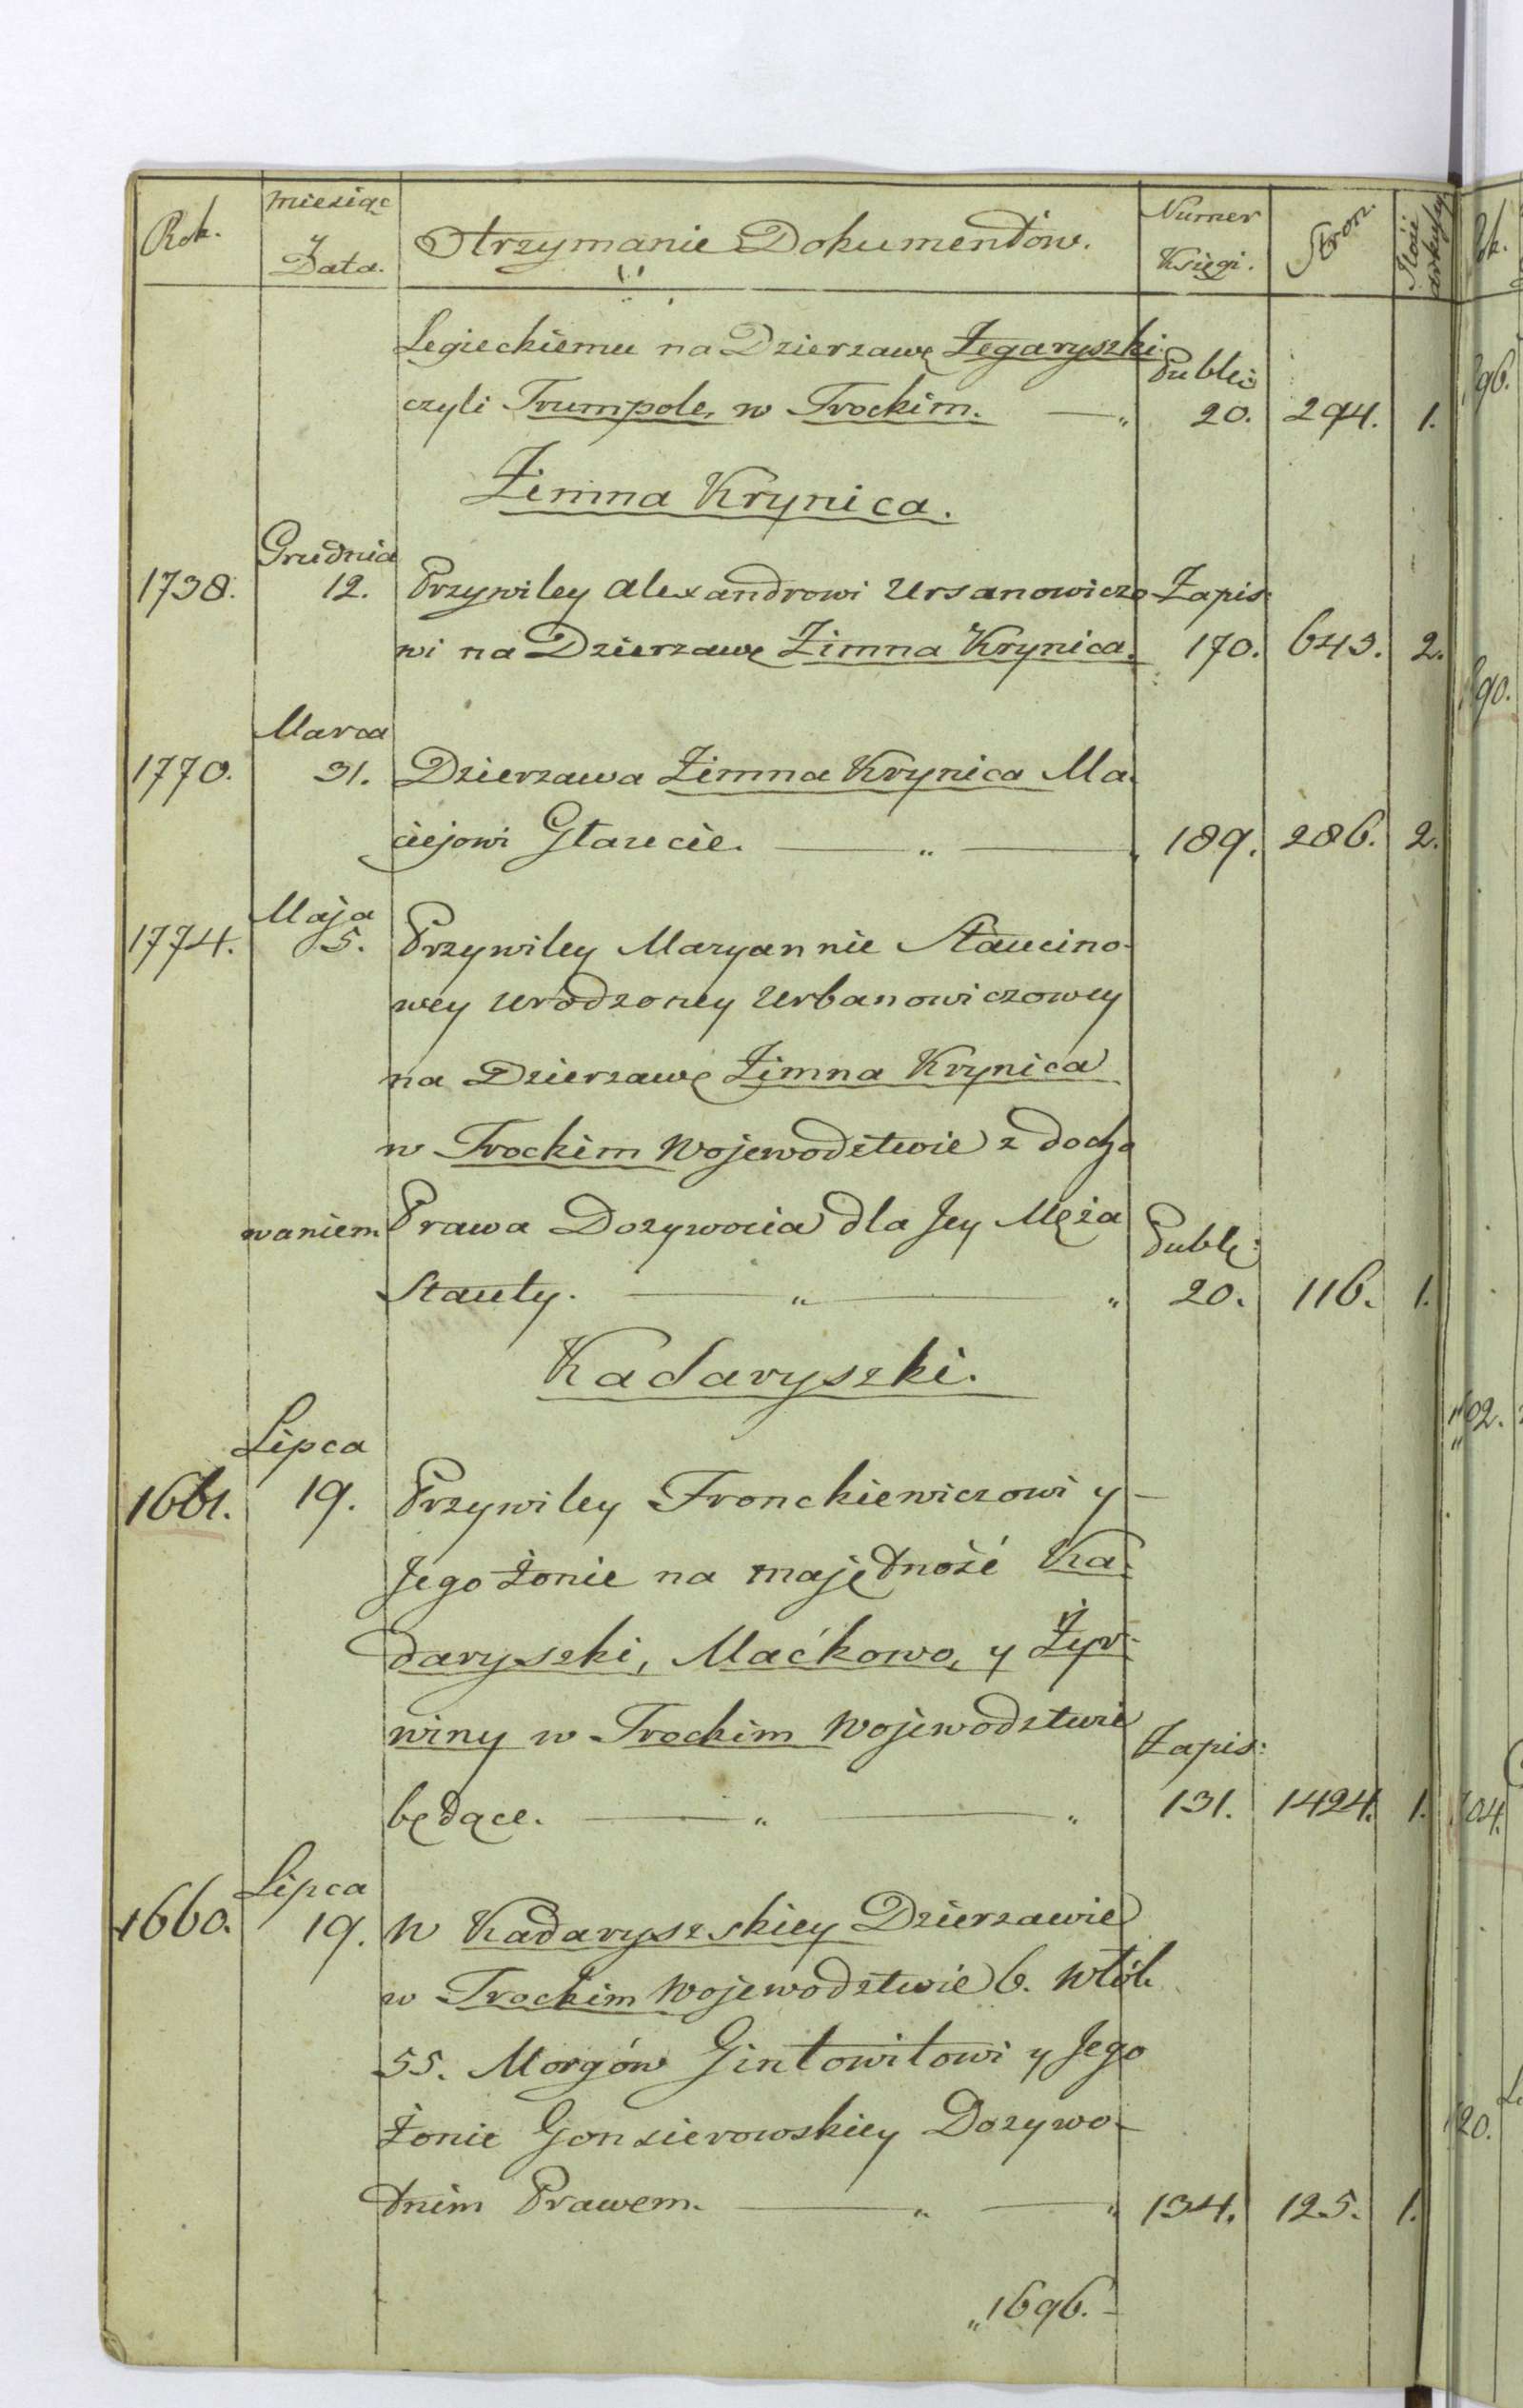 Rok. miesiąc y Data. Otrzymanie Dokumentów. Numer Księgi. Stron. Ilość arkuszy
Legieckiemu na Dzierzawę Zegaryszki Publi:
czyli Trumpole, w Trockim. — „ 20. 294. 1.
Zimna Krynica.
Grudnia
1738. 12. Przywiley Alexandrowi Ursanowiczo- Zapis:
wi na Dzierzawę Zimna Krynica. 170. 643. 2.
Marca
1770. 31. Dzierzawa Zimna Krynica Ma-
ciejowi Stawcie. — „ — „ 189. 286. 2.
Maja
1774. 5. Przywiley Maryannie Staucino-
wey urodzoney Urbanowiczowey
na Dzierzawę Zimna Krynica
w Trockim Wojewodztwie z docho
waniem Prawa Dozywocia dla Jey Męża Publ:
Stauty. — „ — „ 20. 116. 1.
Kadaryszki.
Lipca
1661. 19. Przywiley Fronckiewiczowi y —
Jego Żonie na majętność Ka-
daryszki, Maćkowo, y Żyr-
winy w Trockim Wojewodztwie Zapis:
będące. — „ — „ 131. 1424. 1.
Lipca
1660. 19. W Kadaryszskiey Dzierzawie
w Trockim Wojewodztwie 6. Włók
55. Morgów Gintowitowi y Jego
Żonie Gonsierowskiey Dozywo-
tnim Prawem. — „ — „ 134. 125. 1.
„1696.—